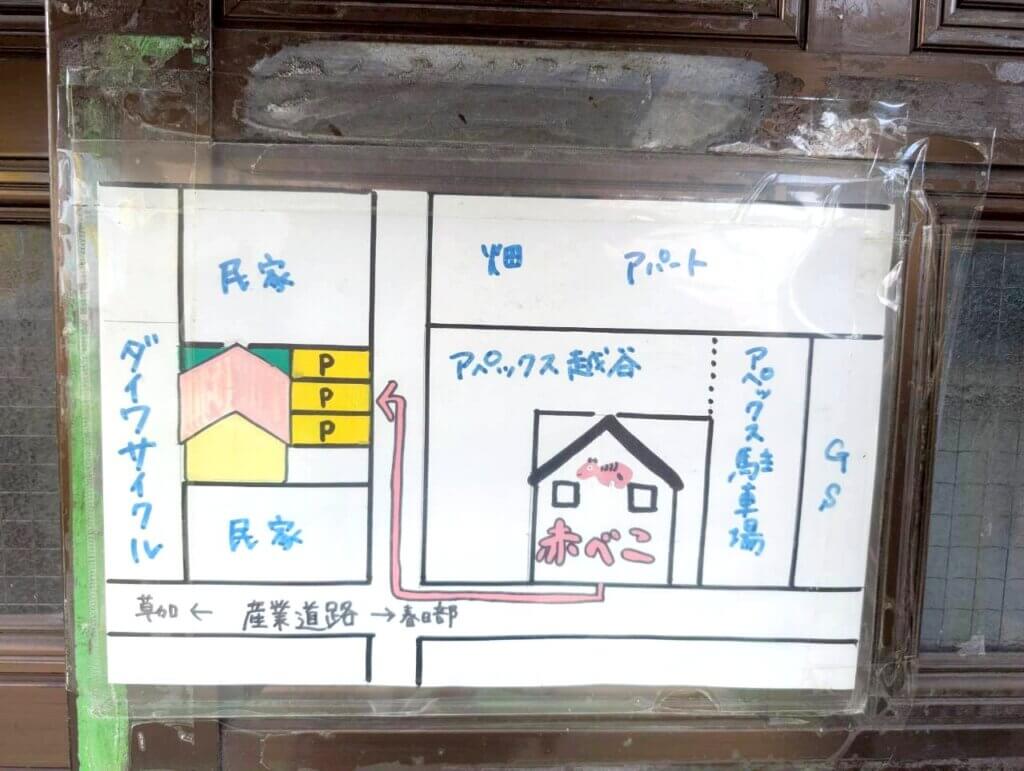 民家
畑
アパート
ダイワサイクル
P
P
P
アペックス越谷
アペックス駐車場
GS
赤べこ
民家
草加 ← 産業道路 → 春日部